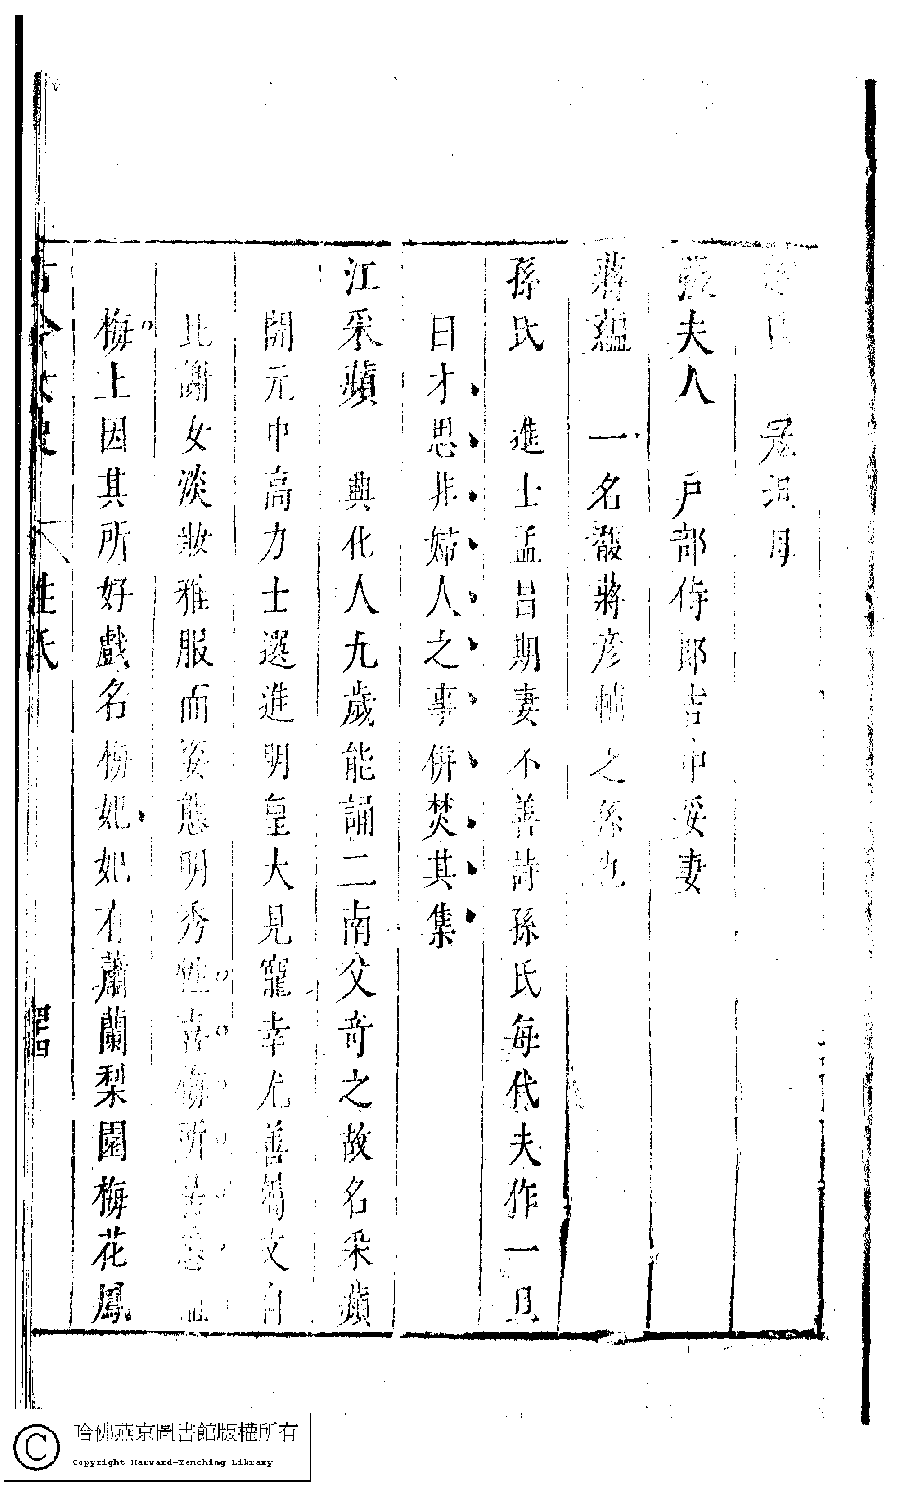 張夫人　戶部侍郎吉中孚妻
蔣蘊　一名馥蔣彥輔之孫也
孫氏　進士孟昌期妻不善詩孫氏每代夫作一旦
曰才思非婦人之事併焚其集
江采蘋　興化人九歲能誦二南父奇之故名采蘋
開元中高力士選進明皇大見寵幸尤善屬文自
比謝女淡妝雅服而姿態明秀性喜梅所居悉植
梅上因其所好戲名梅妃妃有蕭蘭梨園梅花鳳
古今女史　姓氏
哈佛燕京圖書館版權所有
Copyright Harvard-Yenching Library